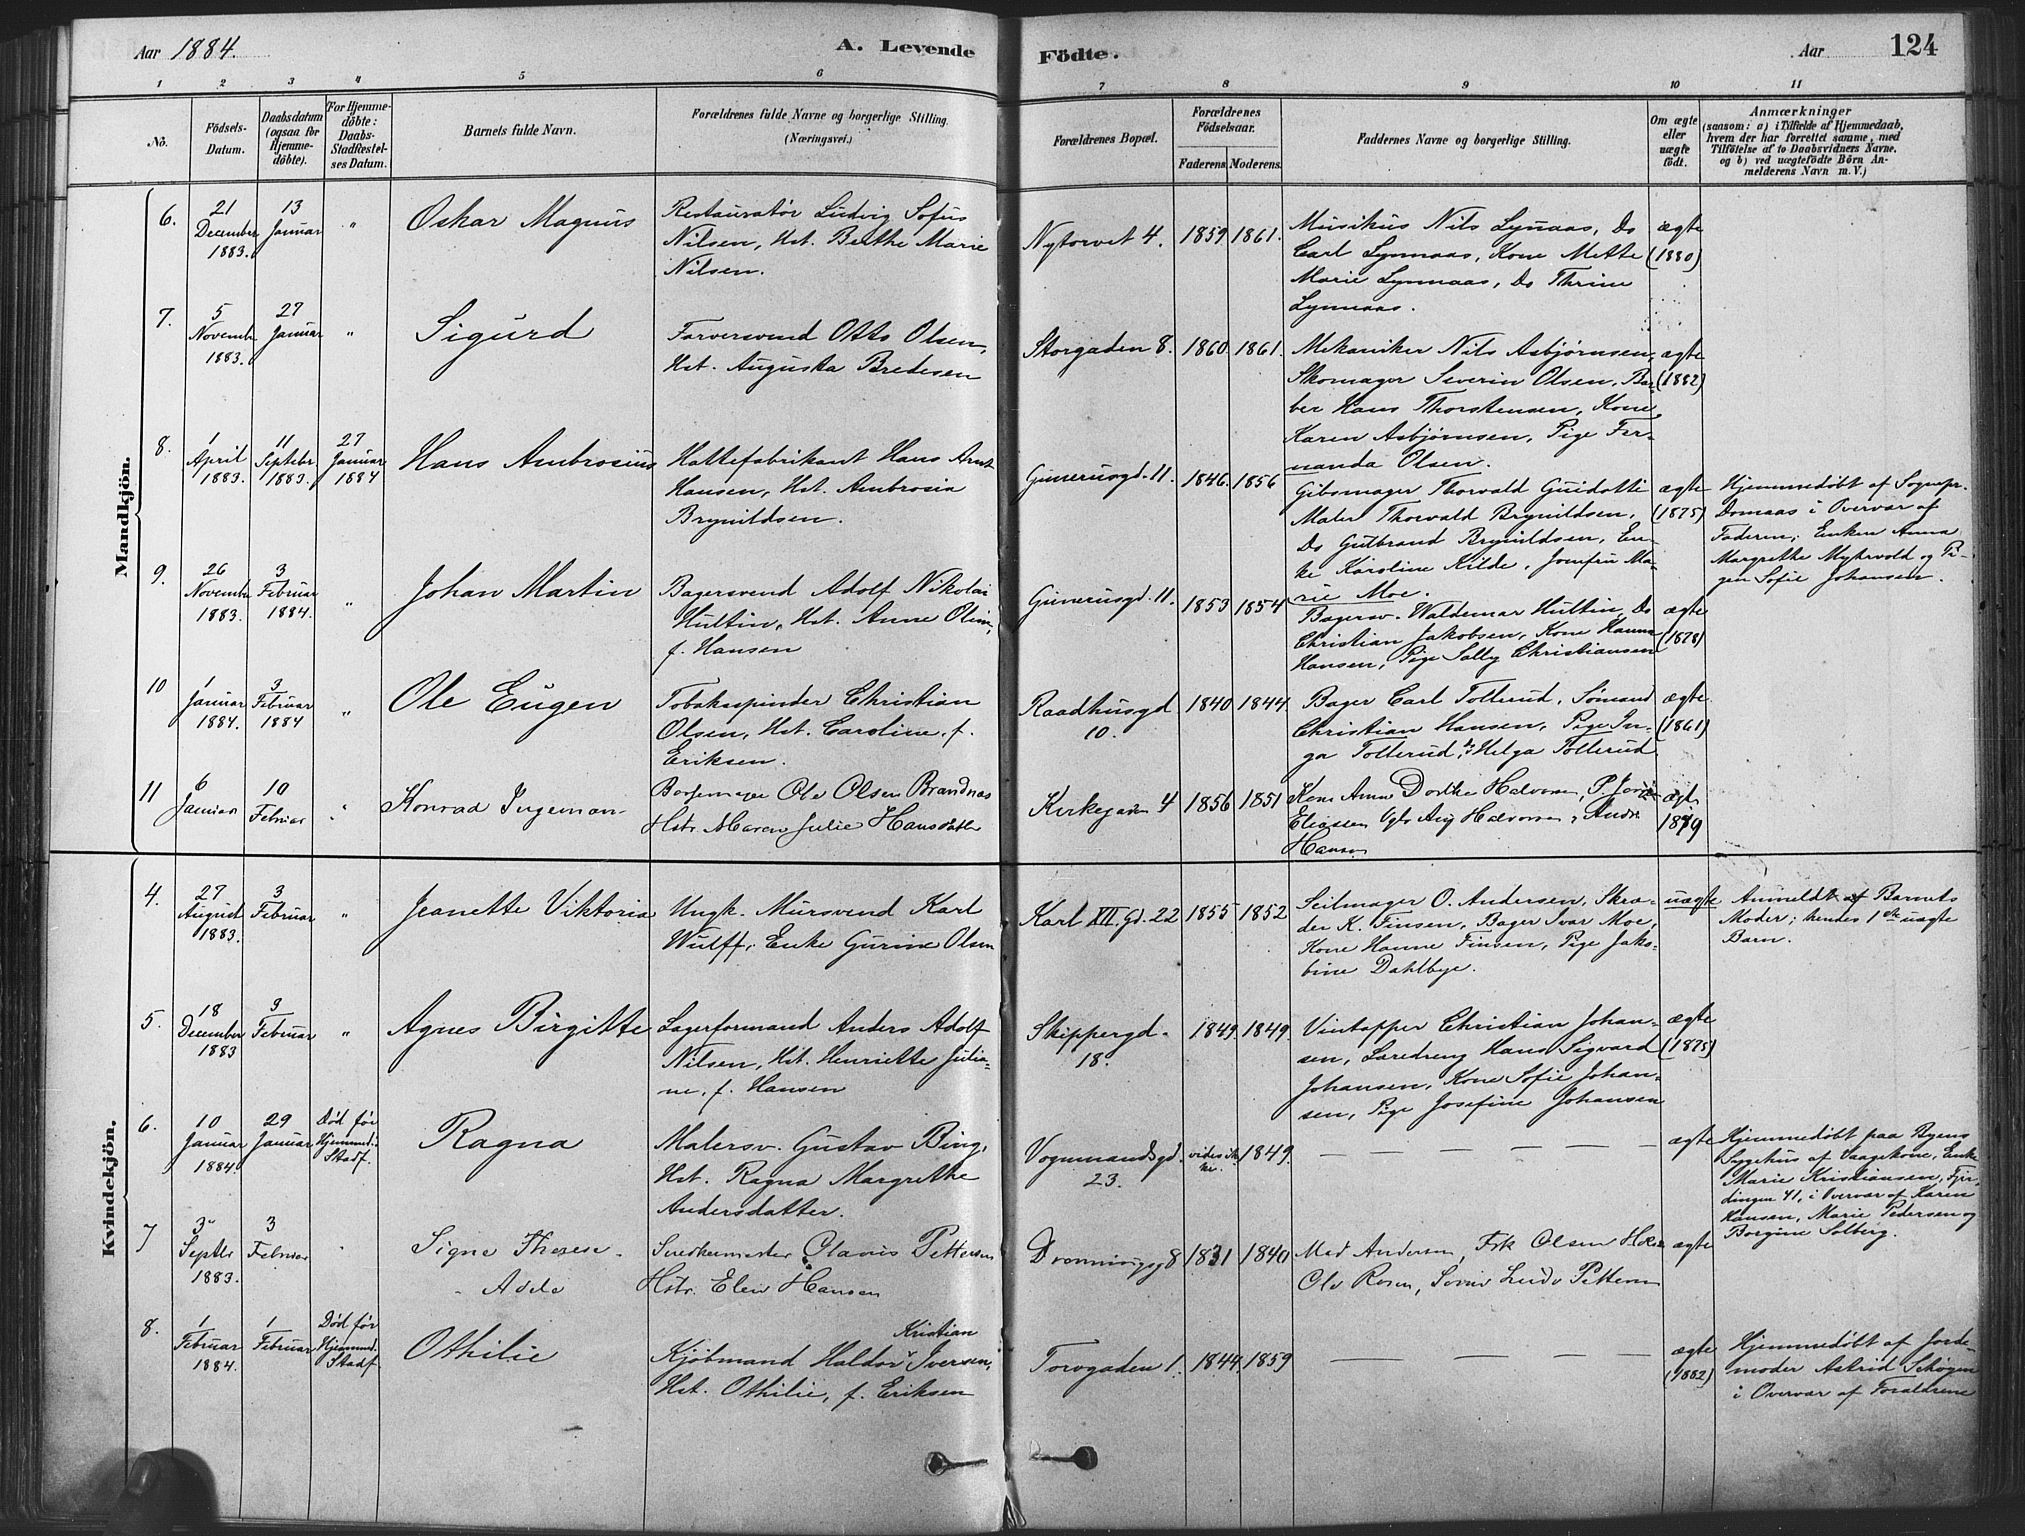 Aar 1884.
A. Levende
Födte.
Aar
124
1 2 3 4 5 6 7 8 9 10 11
No.
Födsels-
Datum.
Daabsdatum
(ogsaa for
Hjemme-
döbte).
For Hjemme-
döbte:
Daabs-
Stadfestel-
ses Datum.
Barnets fulde Navn.
Forældrenes fulde Navne og borgerlige Stilling.
(Næringsvei.)
Forældrenes Bopæl.
Forældrenes
Födselsaar.
Faderens. Moderens.
Faddernes Navne og borgerlige Stilling.
Om ægte
eller
uægte
födt.
Anmærkninger
(saasom: a) i Tilfælde af Hjemmedaab,
hvem der har forrettet samme, med
Tilföielse af to Daabsvidners Navne,
og b) ved uægtefödte Börn An-
melderens Navn m. V.)
Mandkjön.
6.
21
December
1883.
13
Januar
"
Oskar Magnus
Restauratør Ludvig Sofus
Nilsen, Hst. Berthe Marie
Nilsen.
Nytorvet 4.
1859
1861.
Musikus Nils Lynaas, Do
Carl Lynnaas, Kone Mette
Marie Lynnaas, Do Thrine
Lynnaas.
ægte
(1880)
7.
5
Novembr
1883.
27
Januar
"
Sigurd
Farversvend Otto Olsen,
Hst. Auguska Bredesen
Storgaden 8.
1860
1861.
Mekaniker Nils Asbjørnsen,
Skomager Severin Olsen, Bar-
ber Hans Thorstensen, Kone
Karen Asbjørnsen, Pige Fer-
nanda Olsen.
ægte
(1882)
8.
1
April
1883.
11
Septebr
1883.
27
Januar
1884
Hans Ambrosius
Hattefabrikant Hans Arnt
Hansen, Hst. Ambrosia
Brynildsen.
Gunerusgd. 11.
1846.
1856
Gibsmager Thorvald Guidotti
Maler Thorvald Brynildsen,
Do Gutbrand Brynildsen, En-
ke Karoline Kilde, Jomfru Ma-
rie Moe.
ægte
(1875)
Hjemmedøbt af Sognepr.
Domaas i Overvær af
Faderen; Enken Anna
Margrethe Myhrvold og Pi-
gen Sofie Johansen.
9.
26
Novembr
1883.
3
Februar
1884.
"
Johan Martin
Bagersvend Adolf Nikolai
Hultin, Hst. Anne Oline,
f. Hansen
Gunerusgd. 11.
1853
1854
Bagersv. Waldemar Hultin, Do
Christian Jakobsen, Kone Hanna
Hansen, Pige Sally Christiansen
ægte
(1878)
10
1
Januar
1884.
3
Februar
1884
"
Ole Eugen
Tobakspinder Christian
Olsen, Hst. Caroline, f.
Eriksen.
Raadhusgd
10.
1840
1844
Bager Carl Tollerud, Sømand
Christian Hansen, Pige In-
ga Tollerud, Helga Tollerud
ægte
(1861)
11
6
Januar
10
Februar
Konrad Ingeman
Ole Olsen Brandnæs
Hstr. Maren Julie Hansdatter
Kirkegaden 4
1856
1851
Kone Anne Dorthe Halvorsen, P.
Eliassen Halvorsen, Andr
Hansen
ægte
1879
Kvindekjön.
4.
27
August
1883.
3
Februar
"
Jeanette Viktoria
Ungk. Mursvend Karl
Wulff, Enke Gurine Olsen
Karl XII. Gd. 22
1855
1852
Seilmager O. Andersen, Skræ-
der K. Finsen, Bager Ivar Moe,
Kone Hanne Finsen, Pige Jako-
bine Dahlbye.
uægte
Anmeldt af Barnets
Moder; hendes 1ste uægte
Barn.
5.
18
December
1883
9
Februar
"
Agnes Birgitte
Lagerformand Anders Adolf
Nilsen, Hst. Henriette Julia-
ne, f. Hansen
Skippergd.
18.
1849.
1849.
Vintapper Christian Johan-
sen, Læredreng Hans Sigvard
Johansen, Kone Sofie Johan-
sen, Pige Josefine Johansen
ægte
(1875)
6.
10
Januar
1884.
29
Januar
Død før
Hjemmed.
Stadf.
Ragna
Malersv. Gustav Bing,
Hst. Ragna Margrethe
Andersdatter.
Vognmandsgd.
23.
vides ik-
ke.
1849.
— — — — — —
ægte
Hjemmedøbt paa Byens
Sygehus af Vaagekone, Enke
Marie Kristiansen, Fjer-
dingen 41, i Overvær af Karen
Hansen, Marie Pedersen og
Borgine Solberg.
7
3
Septbr
1883.
3
Februar
Signe Therese
Adele
Snedkermester Olavus Pettersen
Hstr. Elen Hansen
Dronningsg 8
1831
1840
Mad Andersen, Frk Olsen
Ole Rosen, Ludv Pettersen
ægte
8.
1
Februar
1884.
1
Februar
Død før
Hjemmed.
Stadf.
Othilie
Kristian
Kjøbmand Haldor Iversen,
Hst. Othilie, f. Eriksen
Torvgaden 1.
1844.
1859
— — — —
ægte
(1882)
Hjemmedøbt af Jorde-
moder Astrid Schøgen
i Overvær af Forældrene